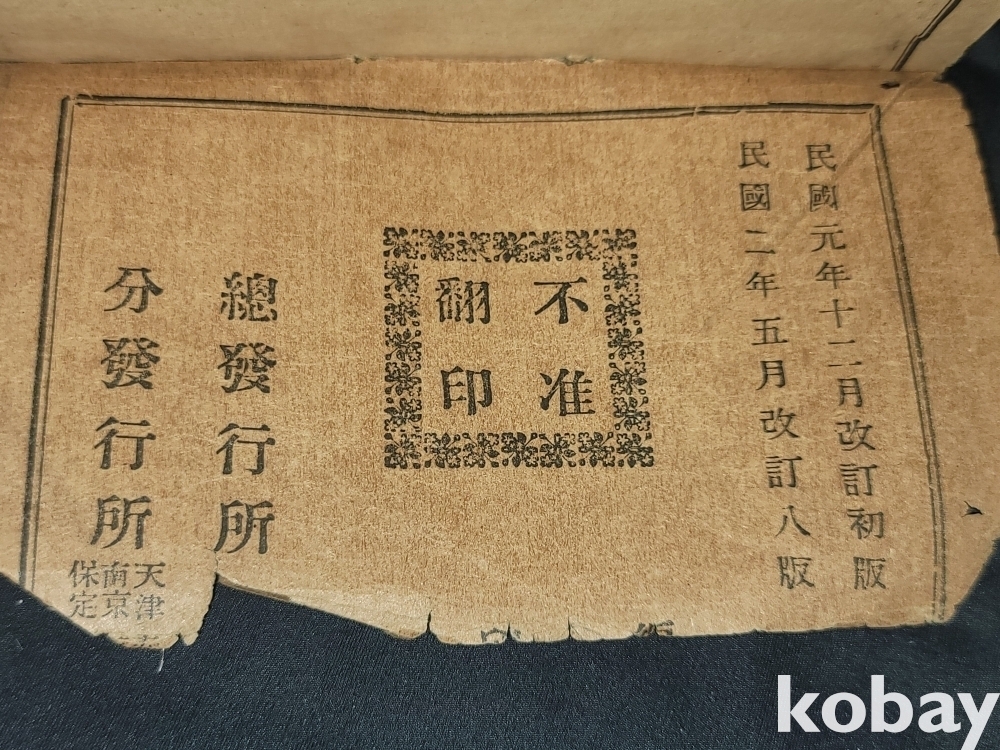 民國元年十二月改訂初版
民國二年五月改訂八版
不准
翻印
總發行所
分發行所
天津
南京
保定
kobay